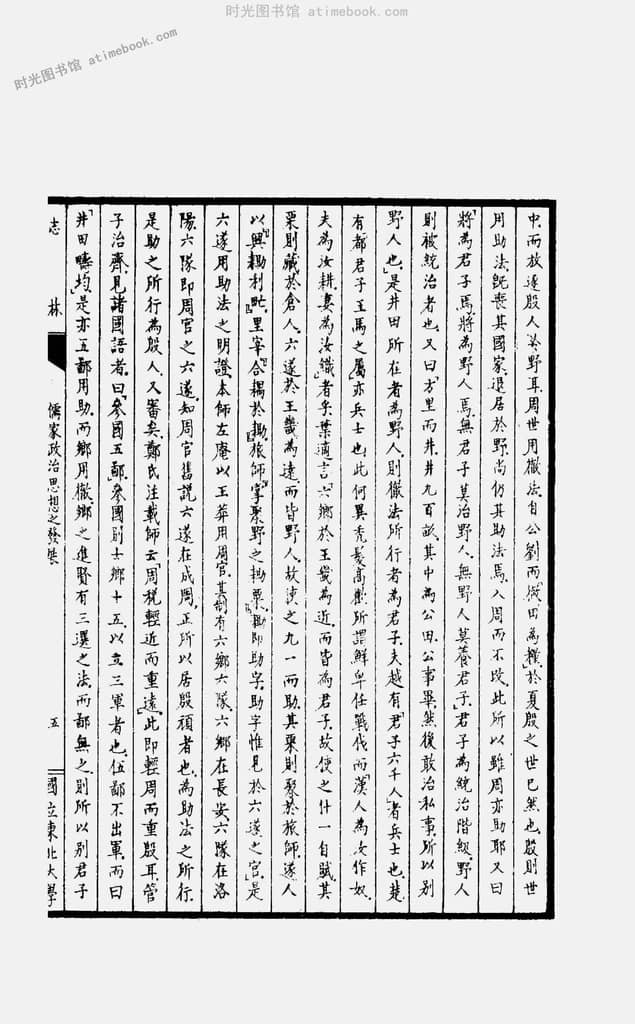 时光图书馆 atimebook.com
时光图书馆 atimebook.com
中．而放逐殷人於野耳．周世用徹法．自公劉而「徹田為糧」．於夏殷之世已然也．殷則世
用助法．既喪其國家．退居於野．尚仍其助法焉．入周而不改．此所以雖周亦助耶．又曰
「將為君子焉．將為野人焉．無君子莫治野人．無野人莫養君子」．君子為統治階級．野人
則被統治者也．又曰「方里而井．井九百畝．其中為公田．公事畢．然後敢治私事．所以別
野人也」．是井田所在者為野人．則徹法所行者為君子．夫越有「君子六千人」者．兵士也．楚
有都君子王馬之屬．亦兵士也．此何異禿髮高歡所謂鮮卑任戰伐．而「漢人為汝作奴．
夫為汝耕．妻為汝織」者乎．葉適言「六鄉於王畿為近．而皆為君子．故使之什一自賦．其
粟則藏於倉人．六遂於王畿為遠．而皆野人．故使之九一而助．其粟則聚於旅師．遂人
以「興耡利甿」．里宰「合耦於耡」．旅師「掌聚野之耡粟」．耡即助字．助字惟見於六遂之官」．是
六遂用助法之明證．本師左庵以王莽用周官．其制有六鄉六隊．六鄉在長安．六隊在洛
陽．六隊即周官之六遂．知周官舊說．六遂在成周．正所以居殷頑者也．為助法之所行．
是助之所行為殷人．又審矣．鄭氏注載師云「周稅輕近而重遠」．此即輕周而重殷耳．管
子治齊．見諸國語者．曰「參國五鄙」．參國別士鄉十五．以立三軍者也．伍鄙不出軍．而曰
「井田疇均」．是亦五鄙用助．而鄉用徹．鄉之進賢有三選之法．而鄙無之．則所以別君子
志林
儒家政治思想之發展
五
國立東北大學